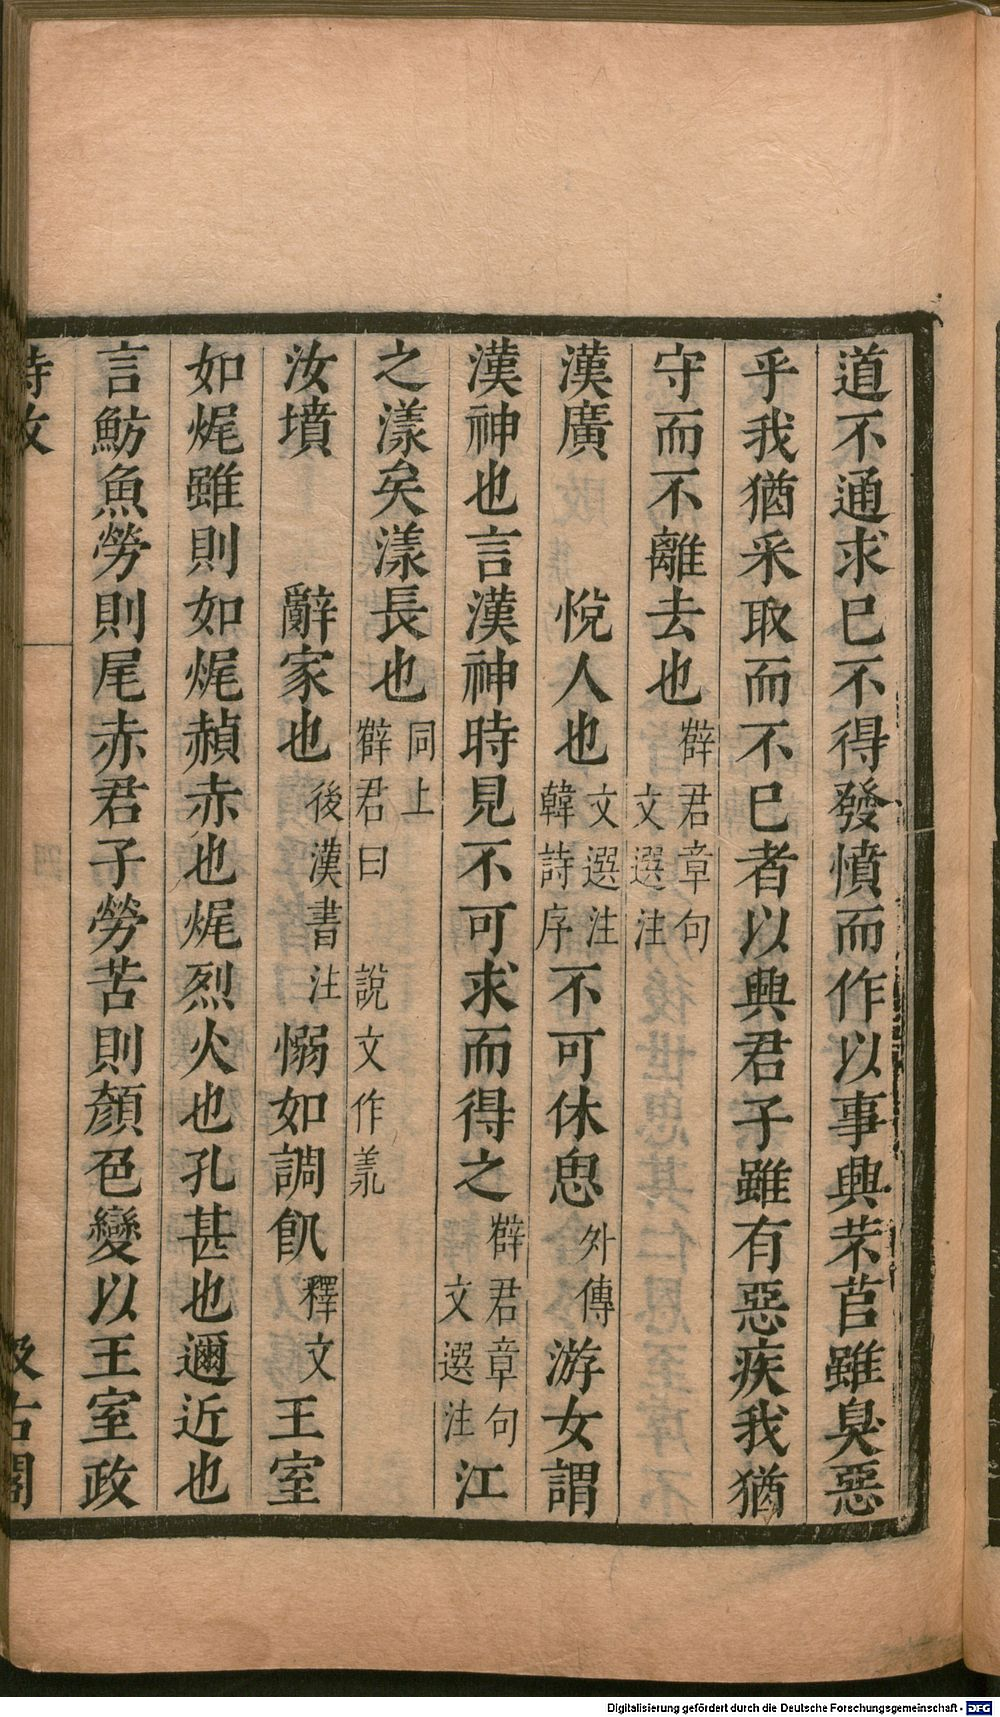 道不通求巳不得發憤而作以事興芣苢雖臭惡
乎我猶采取而不巳者以興君子雖有惡疾我猶
守而不離去也薛君章句文選注
漢廣　悅人也文選注韓詩序不可休思外傳游女謂
漢神也言漢神時見不可求而得之薛君章句文選注江
之漾矣漾長也同上薛君曰　說文作羕
汝墳　辭家也後漢書注　愵如調飢釋文　王室
如烜雖則如烜赬赤也烜烈火也孔甚也邇近也
言魴魚勞則尾赤君子勞苦則顏色變以王室政
詩攷　汲古閣
Digitalisierung gefördert durch die Deutsche Forschungsgemeinschaft - DFG